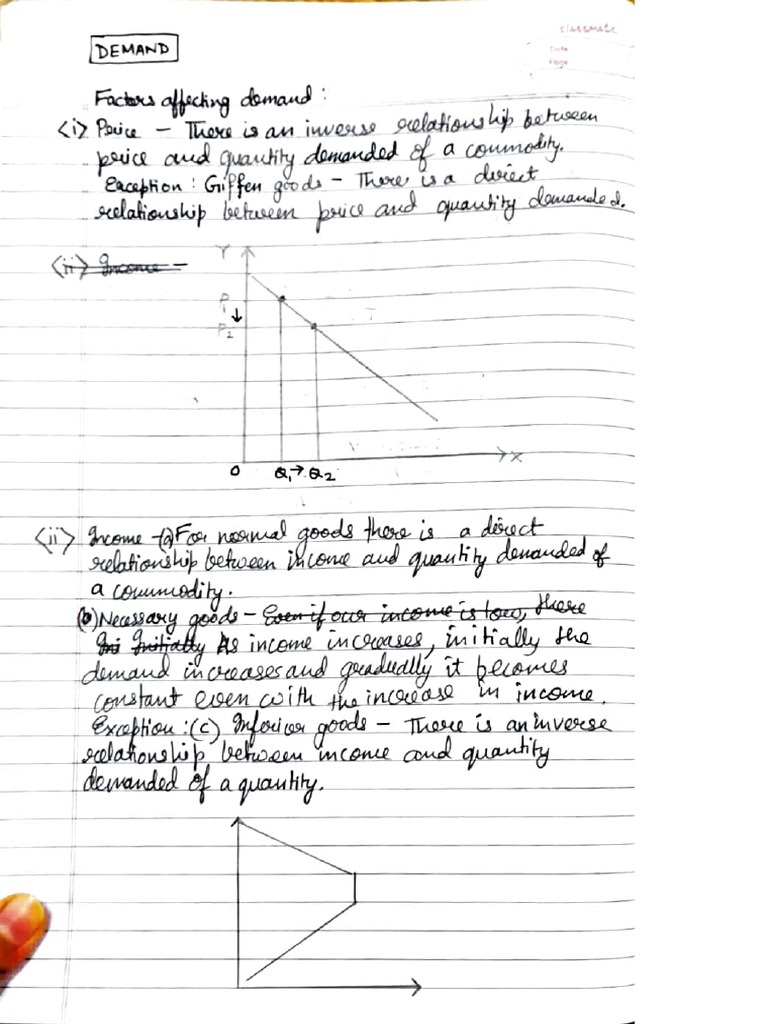 classmate
Date
Page
DEMAND
Factors affecting demand :
<i> Price - There is an inverse relationship between
price and quantity demanded of a commodity.
Exception : Giffen goods - There is a direct
relationship between price and quantity demanded.
<ii> Income -
Y
P1
P2
O Q1 → Q2
X
<ii> Income -(a) For normal goods there is a direct
relationship between income and quantity demanded of
a commodity.
(b) Necessary goods - Even if our income is low, there
Initially As income increases, initially the
demand increases and gradually it becomes
constant even with the increase in income.
Exception :(c) Inferior goods - There is an inverse
relationship between income and quantity
demanded of a quantity.